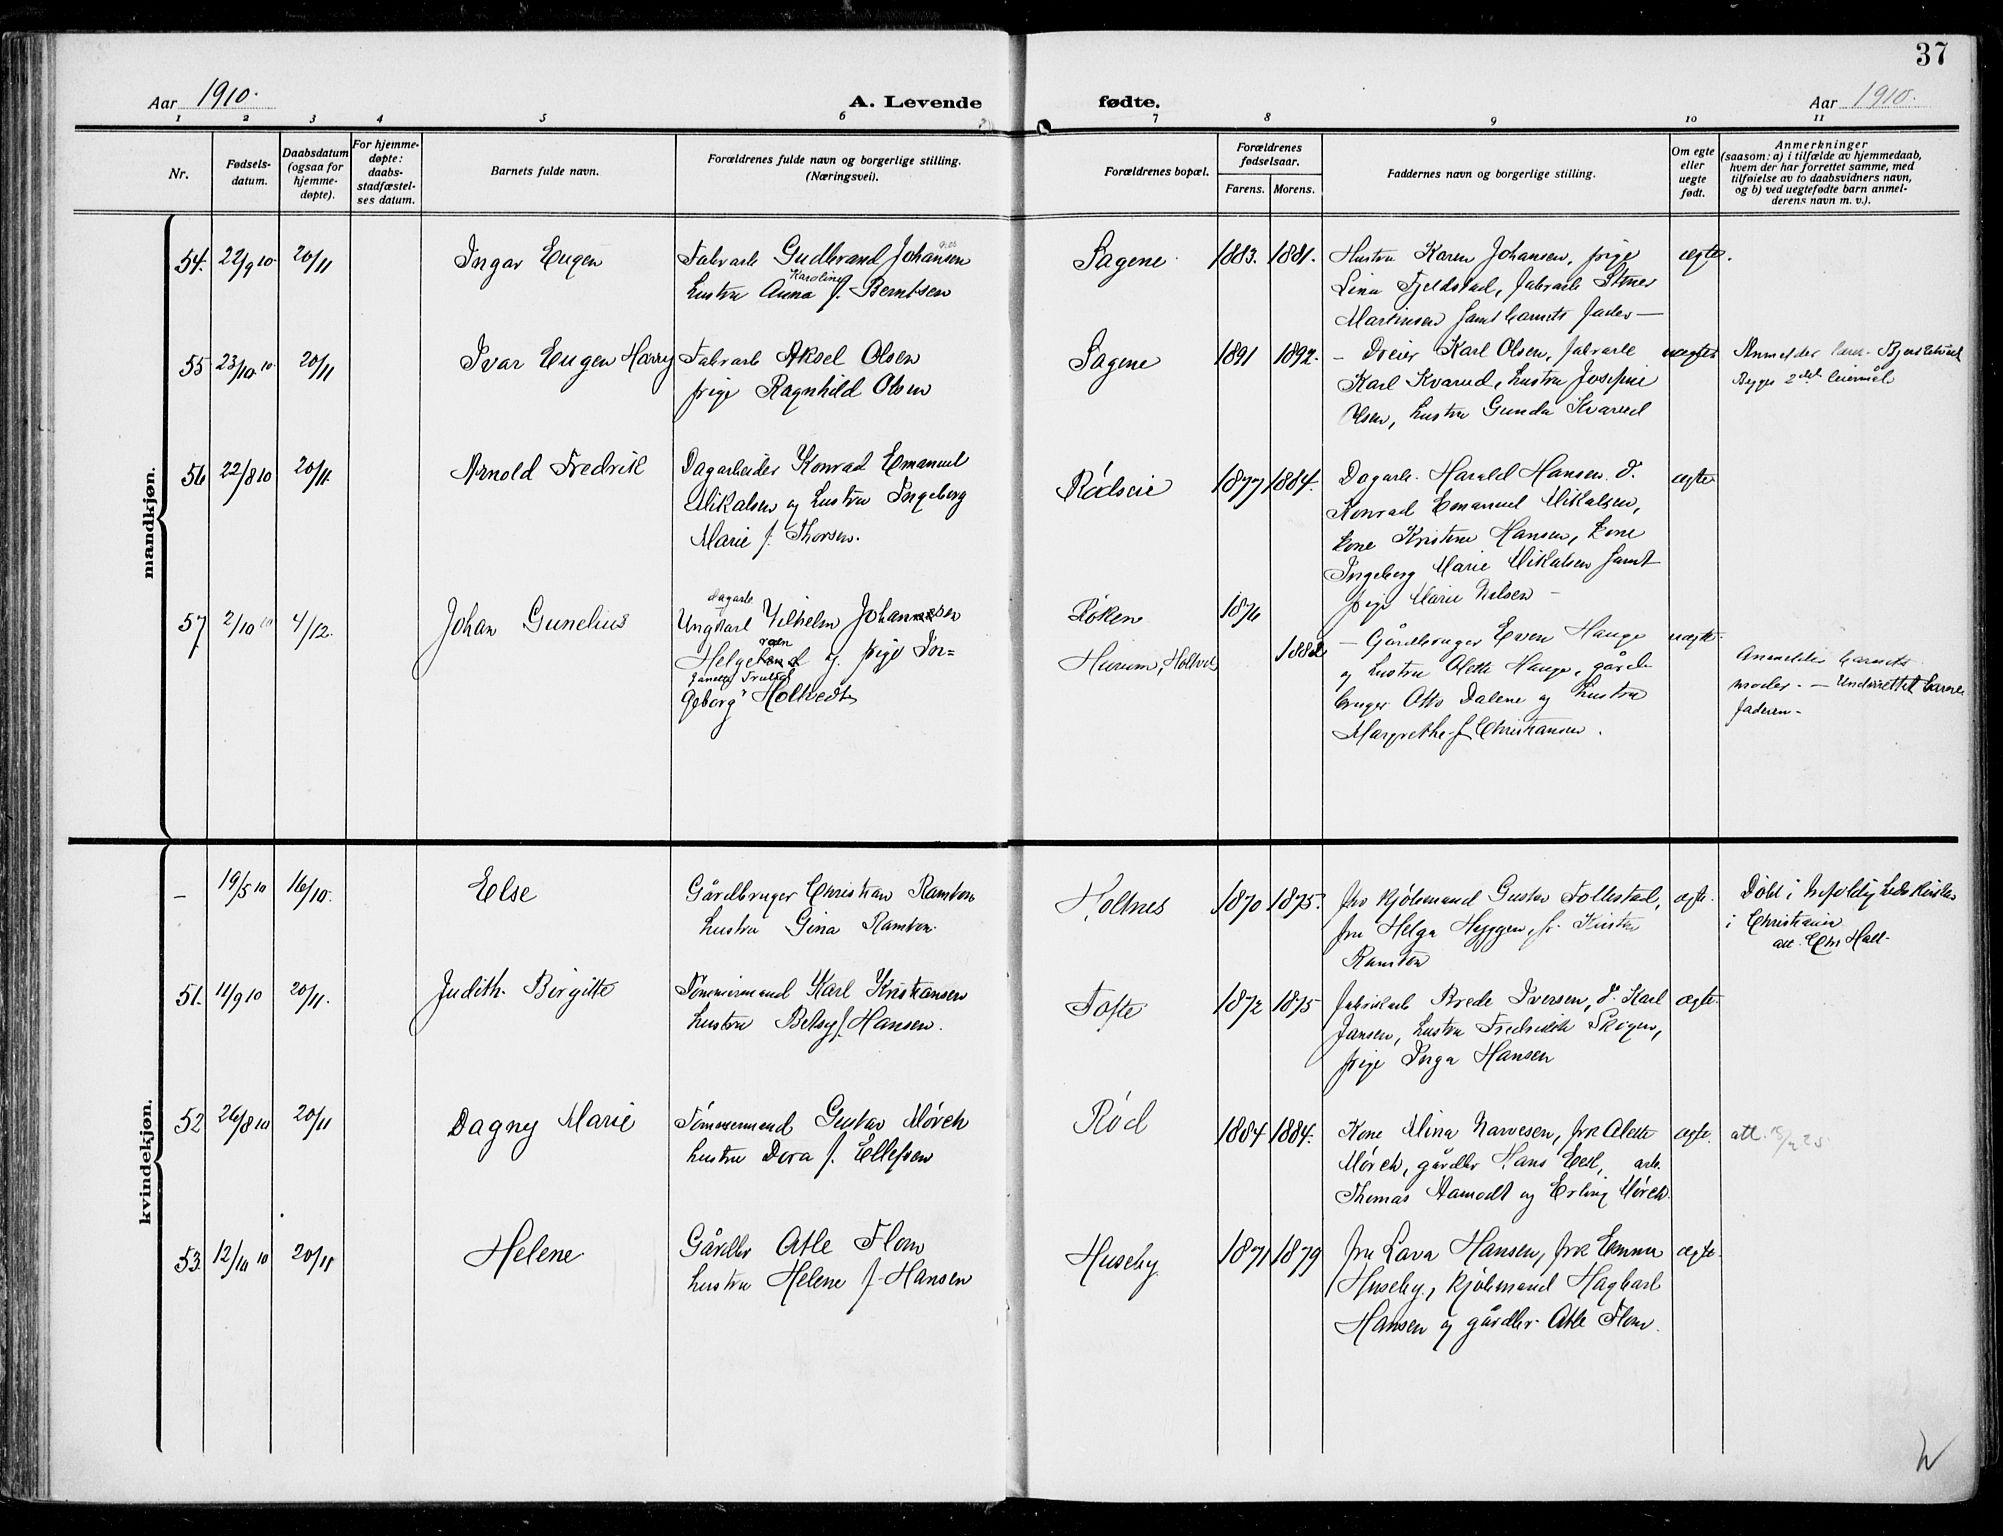 37
Aar 1910.
A. Levende
fødte.
Aar 1910.
1 2 3 4 5 6 7 8 9 10 11
Nr.
Fødsels-
datum.
Daabsdatum
(ogsaa for
hjemme-
døpte).
For hjemme-
døpte:
daabs-
stadfæstel-
ses datum.
Barnets fulde navn.
Forældrenes fulde navn og borgerlige stilling.
(Næringsvei).
Forældrenes bopæl.
Forældrenes
fødselsaar.
Farens. Morens.
Faddernes navn og borgerlige stilling.
Om egte
eller
uegte
født.
Anmerkninger
(saasom: a) i tilfælde av hjemmedaab,
hvem der har forrettet samme, med
tilføielse av to daabsvidners navn,
og b) ved uegtefødte barn anmel-
derens navn m. v.).
mandkjøn.
54. 22/9 10 20/11
Ingar Eugen
Fabrarb Gudbrand Johansen
Karoline
hustru Anna f. Berntsen
Sagene 1883. 1881.
Hustru Karen Johansen, pige
Lina Fjeldstad, fabrarb
Martinsen samt barnets fader —
ægte.
55 23/10 10 20/11
Ivar Eugen Harry
Fabrarb Aksel Olsen
pige Ragnhild Olsen
Sagene 1891 1892.
— Dreier Karl Olsen, fabrarb
Karl Kvarud, hustru Josefine
Olsen, hustru Gunda Kvarud
uægte
Anmelder
2det leiermål
56 22/8 10 20/11.
Arnold Fredrik
Dagarbeider Konrad Emanuel
Mikalsen og hustru Ingeborg
Marie f. Thorsen.
Rødseie 1877 1884.
Dagarb. Harald Hansen d.
Konrad Emanuel Mikalsen,
kone Kristine Hansen, kone
Ingeborg Marie Mikalsen samt
pige Marie Nilsen —
ægte
57 2/10 10 4/12.
Johan Gunelius
dagarb
Ungkarl Vilhelm Johannesen
Helge og pige In-
geborg Holtvedt
Røken 1876
Hurum, Holtved 1882
— Gårdbruger Even Hauge
og hustru Alette Hauge, gård-
bruger Otto Dalene og hustru
Margrethe f Christiansen.
uægte.
Anmelder barnets
moder. — Underrettet barne
faderen.
kvindekjøn.
— 19/5 10 16/10.
Else
Gårdbruger Christian Ramton
hustru Gina Ramton.
Holtnes 1870 1875.
frk kjøbmand Gustav Follestad,
fru Helga Heyggen, fr. Kirsten
Ramton
ægte.
Døbt i
i Christiania
att. Chr Hall.
51. 11/9 10 20/11.
Judith Birgitte
Tømmermand Karl Kristiansen
hustru Betsy f. Hansen.
Tofte 1872 1875
Fabrikarb Brede Iversen, d. Karl
Jansen, hustru Fredrikke Skogen,
pige Inga Hansen
ægte
52 26/8 10 20/11
Dagny Marie
Tømmermand Gustav Mørch
hustru Dora f. Ellefsen
Rød 1884 1884.
Kone Mina Narvesen, frk Alette
Mørch, gårdbr Hans Eed, arb.
Thomas Aamodt og Erling Mørch.
ægte.
att.
53. 12/10 10 20/11
Helene
Gårdbr Atle Flom
hustru Helene f. Hansen
Huseby 1871 1879
fru Lava Hansen, frk Emma
Huseby, kjøbmand Hagbart
Hansen og gårdbr. Atle Flom.
ægte.